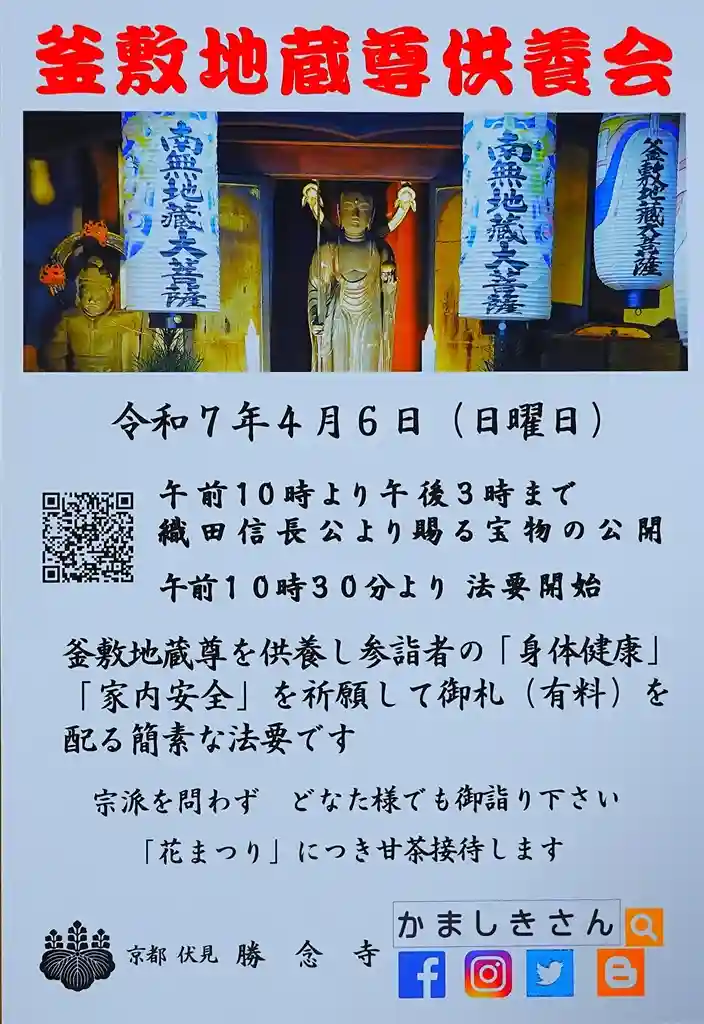 釜敷地蔵尊供養会
南無地蔵大菩薩
南無地蔵大菩薩
釜敷地蔵大菩薩
令和7年4月6日（日曜日）
午前10時より午後3時まで
織田信長公より賜る宝物の公開
午前10時30分より 法要開始
釜敷地蔵尊を供養し参詣者の「身体健康」
「家内安全」を祈願して御札（有料）を
配る簡素な法要です
宗派を問わず　どなた様でも御詣り下さい
「花まつり」につき甘茶接待します
かましきさん
京都 伏見 勝念寺